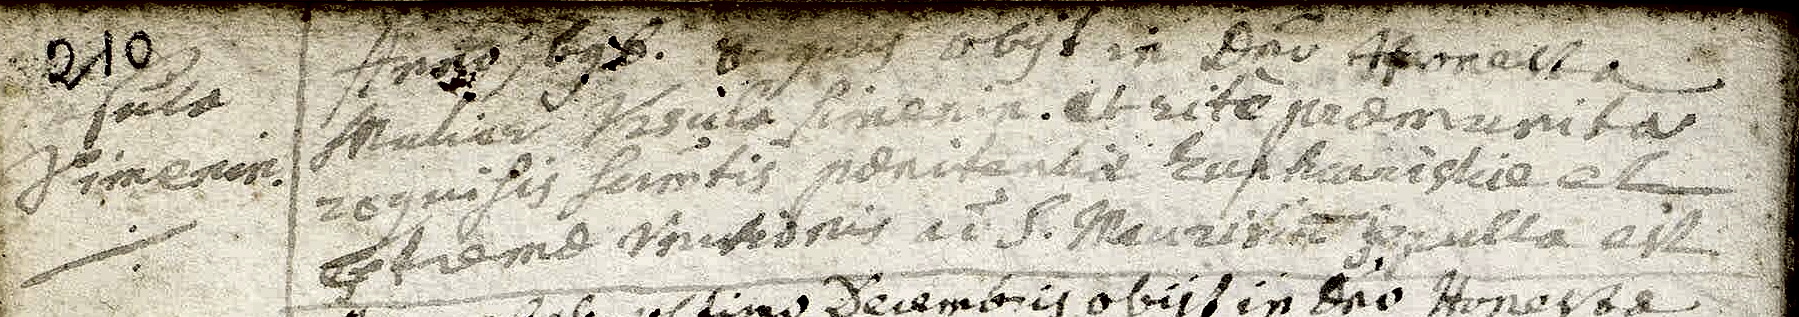 210
sula
Simenin.
Anno obijt in Dno Honesta
Mulier Vrsula Simenin. et rite præmunita
requisis sumtis pœnitentiæ Eucharistiæ et
Extremæ Vnctionis ad S. Mauritiū sepulta est.
ultimo Decembris obijt in Dno Honesta